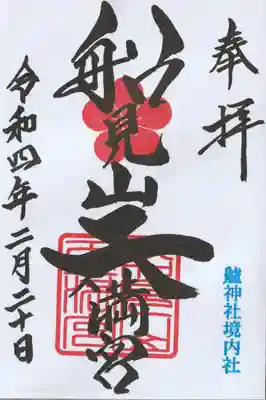 奉拝
船見山天満宮
令和四年二月二十日
艫神社境内社